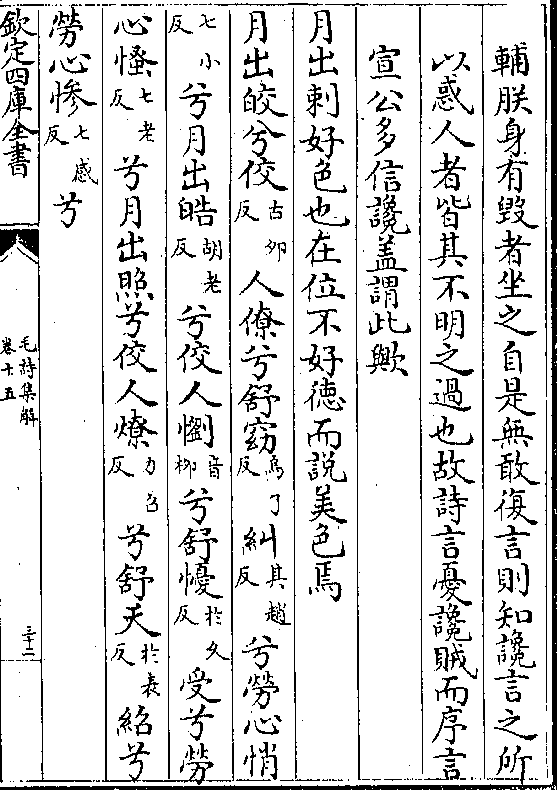 輔朕身有毀者坐之自是無敢復言則知讒言之所
以惑人者皆其不明之過也故詩言憂讒賊而序言
宣公多信讒蓋謂此歟
月出刺好色也在位不好德而説美色焉
月出皎兮佼古夘反人僚兮舒窈烏了反糾其趙反兮勞心悄
七小反兮月出皓胡老反兮佼人懰音柳兮舒懮於久反受兮勞
心慅七老反兮月出照兮佼人燎力召反兮舒夭於表反紹兮
勞心惨七感反兮
欽定四庫全書
毛詩集解
卷十五
三十二